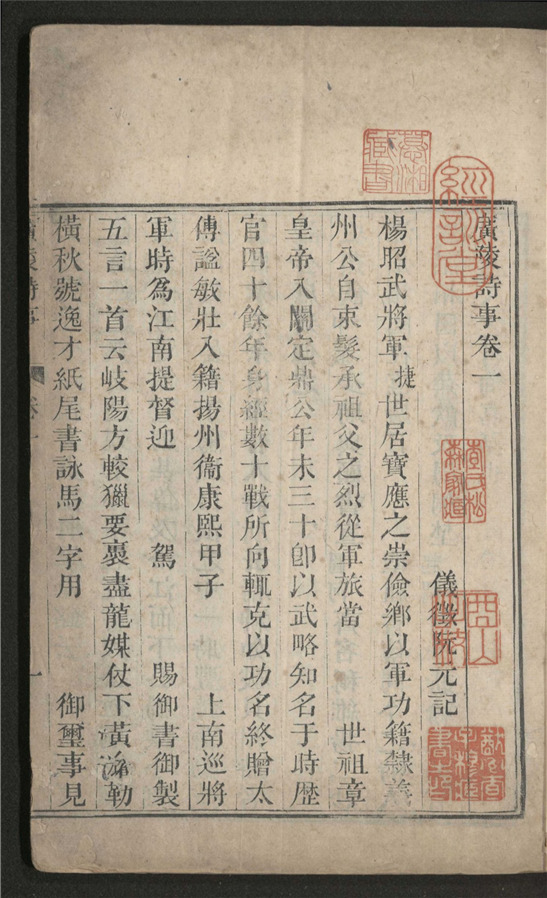 廣陵詩事卷一
儀徵阮元記
楊昭武將軍捷世居寶應之崇儉鄉以軍功籍隸義
州公自束髮承祖父之烈從軍旅當 世祖章
皇帝入關定鼎公年未三十卽以武略知名于時歴
官四十餘年身經數十戰所向輒克以功名終贈太
傅謚敏壯入籍揚州衞康熙甲子 上南巡將
軍時爲江南提督迎 駕 賜御書御製
五言一首云岐陽方較獵要褭盡龍媒仗下黃游勒
橫秋號逸才紙尾書詠馬二字用 御璽事見
廣陵詩事 卷一 一